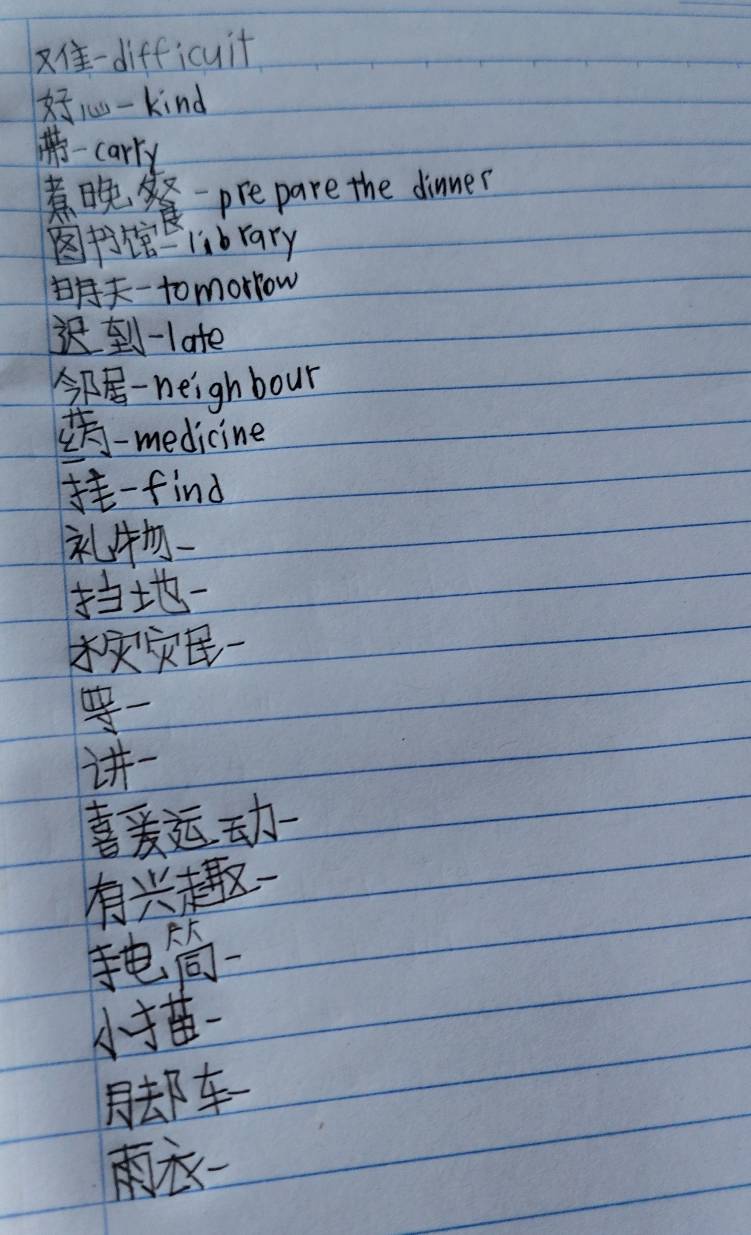 难-difficuit
好心-kind
带-carry
煮晚餐-prepare the dinner
图书馆-library
明天-tomorrow
迟到-late
邻居-neighbour
药-medicine
-find
礼物-
挡土地-
水灾灾民-
等-
讲-
喜爱运动-
有兴趣-
手电筒-
小猫-
脚车-
雨衣-